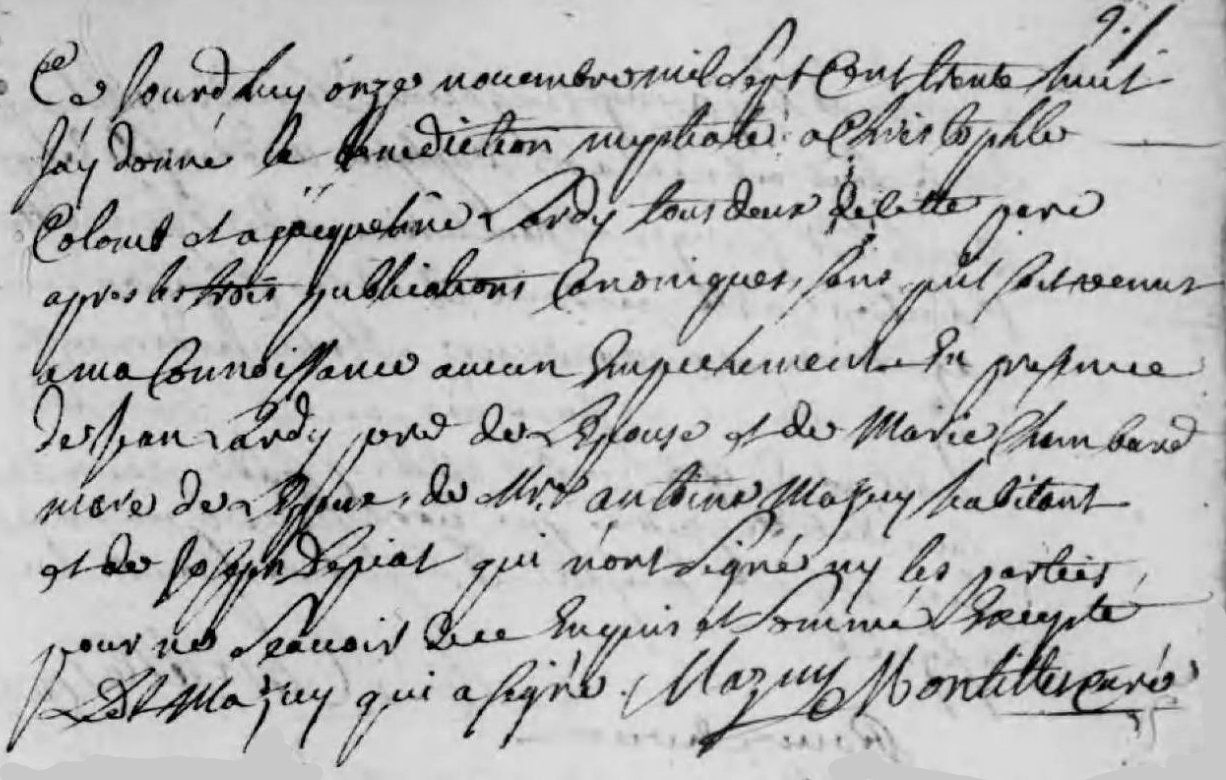 Ce Jourdhuy onze nouembre mil Sept Cent trente huit
J'ay donné la benediction nuptiale a Christophle
Colomb et a jacqueline Lardy tous deux de cette
apres les trois publications Canoniques, sans quil soit venue
a ma Connoissance aucun Empechement En presence
de Jean Lardy pere de LEpouse et de Marie Chambard
mere de LEpoux, de Mr. antoine Mazuy habitant
et de Joseph Depiat qui n'ont Signé ny les parties,
pour ne Scauoir de ce Enquis et Sommé Excepté
Ledt Mazuy qui a signé. Mazuy Montillet curé